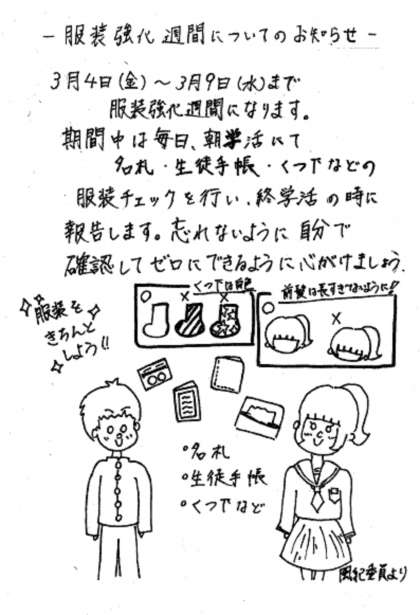 －服装強化週間についてのお知らせ－
3月4日(金)～3月9日(水)まで
服装強化週間になります。
期間中は毎日、朝学活にて
名札・生徒手帳・くつ下などの
服装チェックを行い、終学活の時に
報告します。忘れないように自分で
確認してゼロにできるように心がけましょう。
くつ下は白色
○ × ×
前髪は長すぎないように!!
○ ×
服装を
きちんと
しよう!!
・名札
・生徒手帳
・くつ下など
風紀委員より